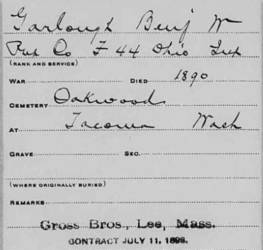 Garlough Benj W
Pvt Co F 44 Ohio Inf
(RANK AND SERVICE)
WAR DIED 1890
CEMETERY Oakwood
AT Tacoma Wash
GRAVE SEC.
(WHERE ORIGINALLY BURIED)
REMARKS
Gross Bros., Lee, Mass.
CONTRACT JULY 11, 1898.